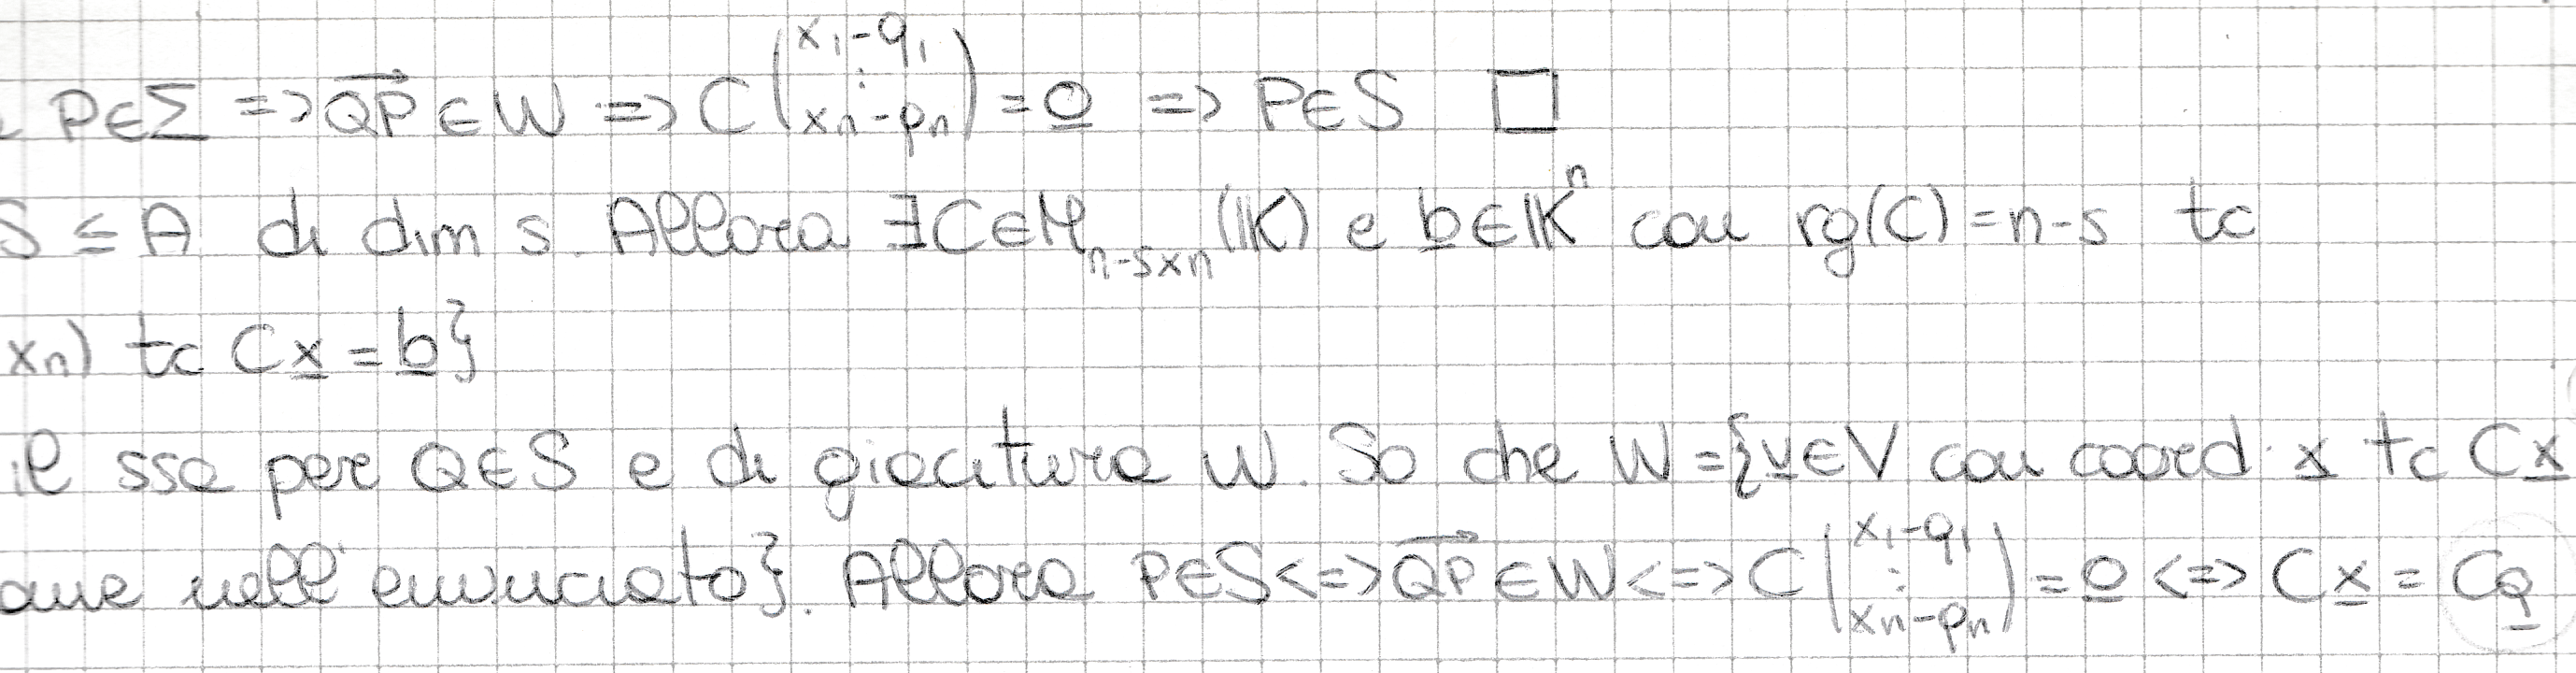 P∈Σ => \overrightarrow{QP} ∈ W => C \begin{pmatrix} x_1-q_1 \\ \vdots \\ x_n-p_n \end{pmatrix} = \underline{o} => P∈S □
S ≤ A di dim s. Allora ∃C∈M_{n-s×n}(𝕂) e \underline{b}∈𝕂^n con rg(C)=n-s tc
x_n) tc C\underline{x} = \underline{b}}
il ssa per Q∈S e di giacitura W. So che W={\underline{v}∈V con coord. \underline{x} tc C\underline{x}
nell'enunciato}. Allora P∈S<=>\overrightarrow{QP}∈W<=>C \begin{pmatrix} x_1-q_1 \\ \vdots \\ x_n-p_n \end{pmatrix} = \underline{o} <=> C\underline{x} = C\underline{q}